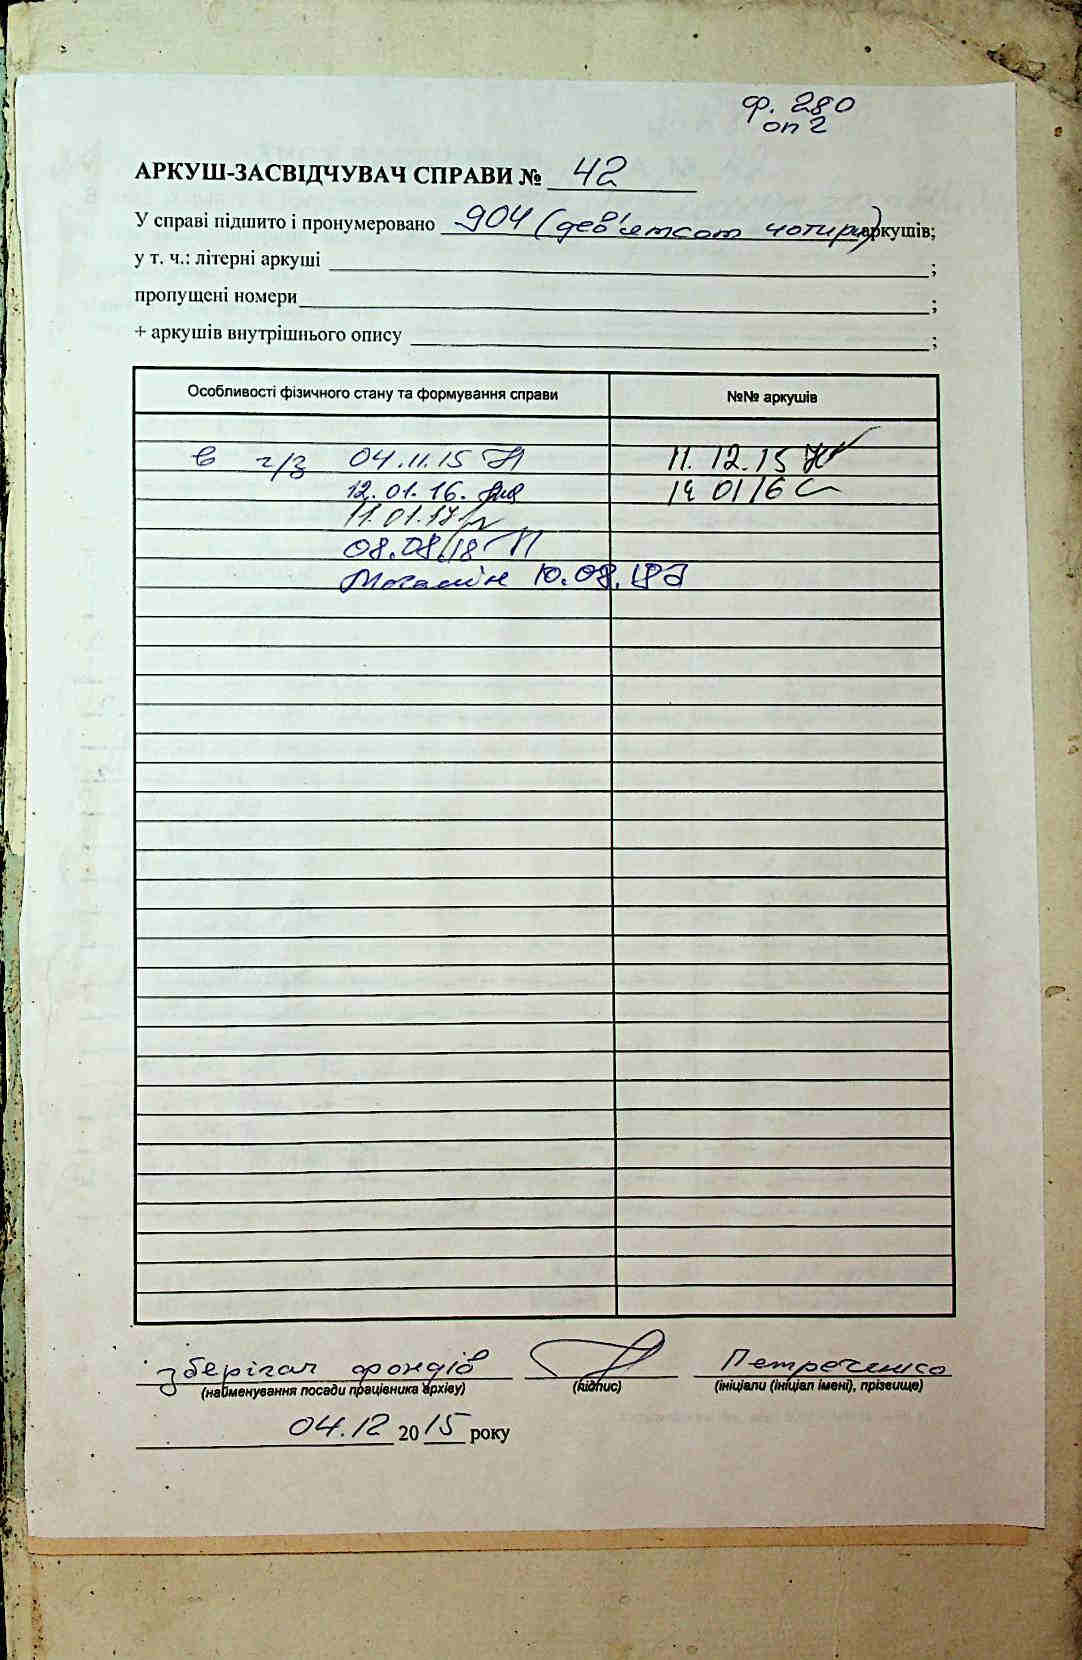 ф. 280
оп 2
АРКУШ-ЗАСВІДЧУВАЧ СПРАВИ № 42
У справі підшито і пронумеровано 904 (дев'ятсот чотири) аркушів;
у т. ч.: літерні аркуші ;
пропущені номери ;
+ аркушів внутрішнього опису ;
Особливості фізичного стану та формування справи №№ аркушів
в ч/з 04.11.15 11.12.15
12.01.16. 19 01 16
11.01.17
08.08.18
10.08.18
зберігач фондів
(найменування посади працівника архіву) (підпис) (ініціали (ініціал імені), прізвище)
04.12 2015 року